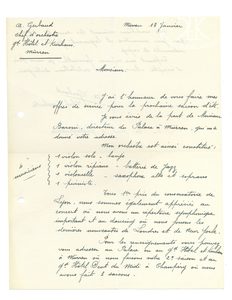 A. Gerbaud
chef d'orchestre
gd Hôtel et Kurhaus
Mürren
Mürren 13 janvier
Monsieur,
J'ai l'honneur de vous faire mes
offres de service pour la prochaine saison d'été.
Je vous écris de la part de Monsieur
Baroni, directeur du Palace à Mürren, qui m'a
donné votre adresse.
Mon orchestre est ainsi constitué :
1 violon solo - banjo
1 violon - batterie de jazz
1 violoncelle - saxophone alto et soprano
1 pianiste
Tous 1er prix du conservatoire de
Lyon, nous sommes également appréciés au
concert où nous avons un répertoire symphonique
important et au dancing où nous jouons les
dernières nouveautés de Londres et de New York.
Pour les renseignements vous pouvez
vous adresser au Palace ou au gd Hôtel et Kurhaus
à Mürren où nous faisons notre 2e saison et au
gd Hôtel Beau du Midi à Champéry où nous
avons fait 2 saisons.